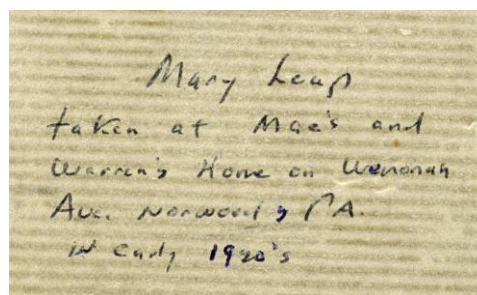 Mary Leap
taken at Mae's and
Warren's Home on Wenonah
Ave. Norwood, PA.
in early 1920's